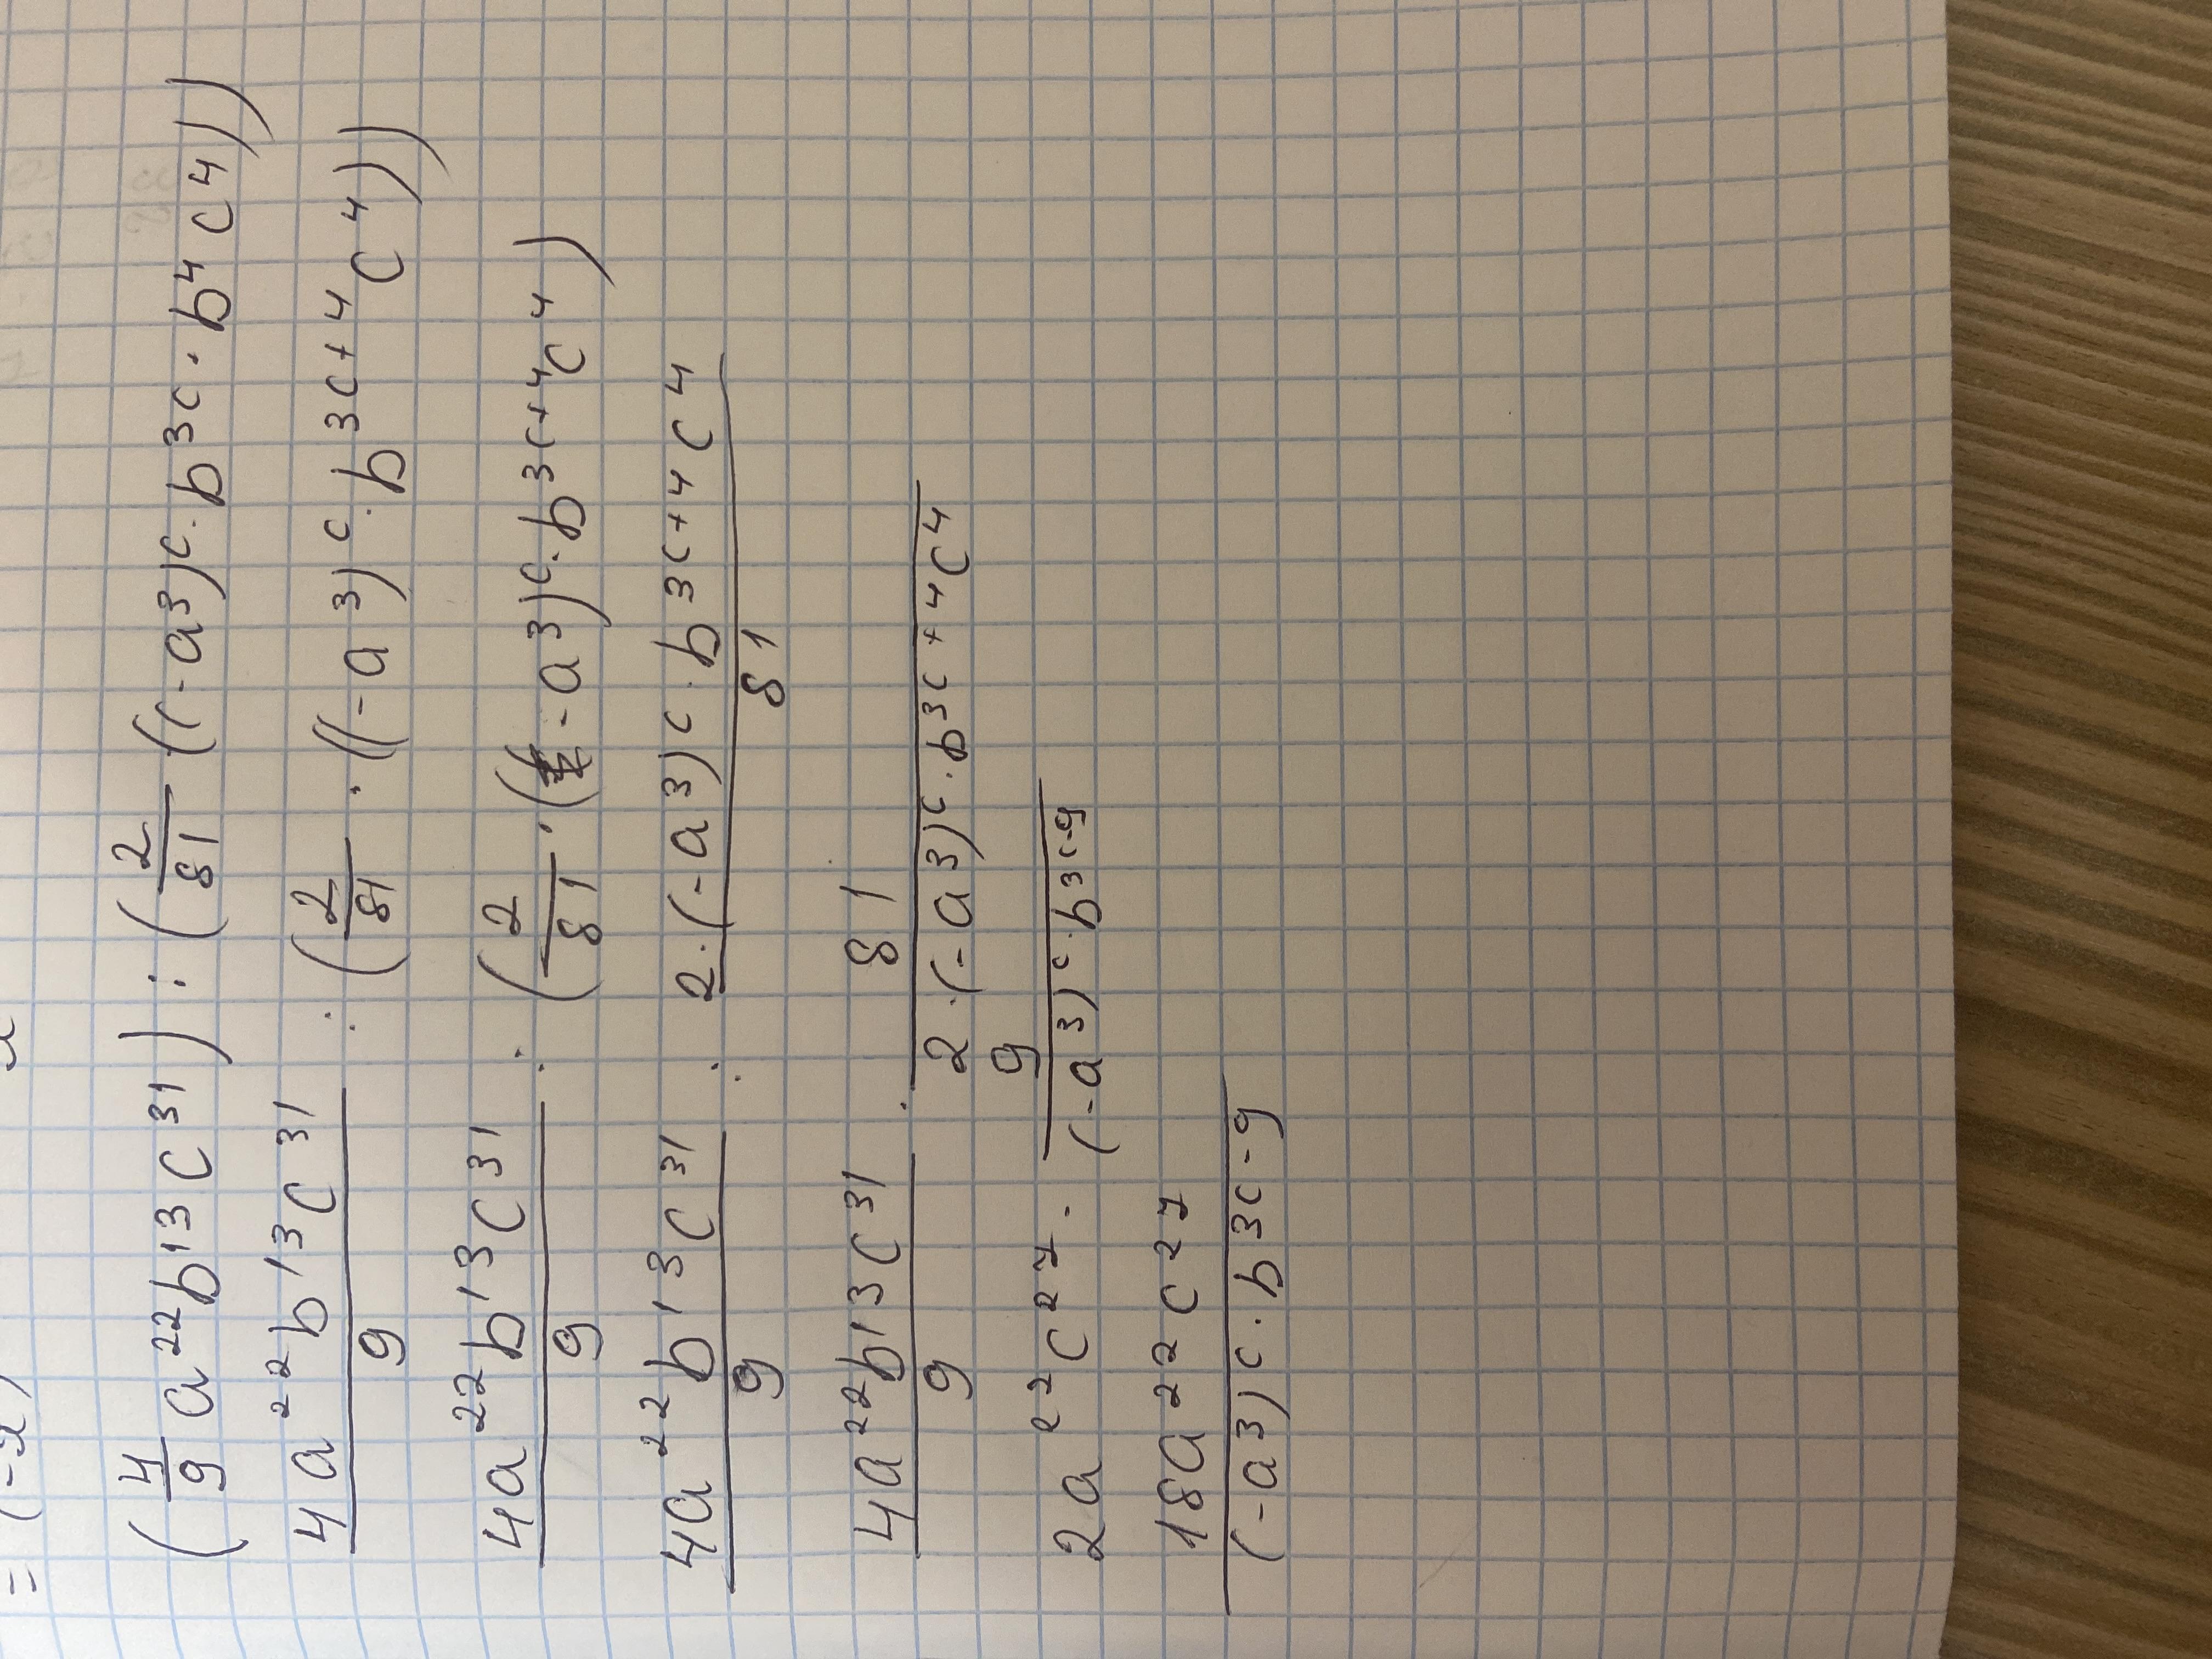 = (-2)
(4/9 a²²b¹³c³¹) : (2/81 ((-a³)ᶜ · b³ᶜ · b⁴c⁴))
4a²²b¹³c³¹/9 : (2/81 · ((-a³)ᶜ · b³ᶜ⁺⁴c⁴))
4a²²b¹³c³¹/9 : (2/81 · (-a³)ᶜ · b³ᶜ⁺⁴c⁴)
4a²²b¹³c³¹/9 : 2·(-a³)ᶜ · b³ᶜ⁺⁴c⁴/81
4a²²b¹³c³¹/9 · 81/2·(-a³)ᶜ · b³ᶜ⁺⁴c⁴
2a²²c²⁷ · 9/(-a³)ᶜ · b³ᶜ⁻⁹
18a²²c²⁷/(-a³)ᶜ · b³ᶜ⁻⁹